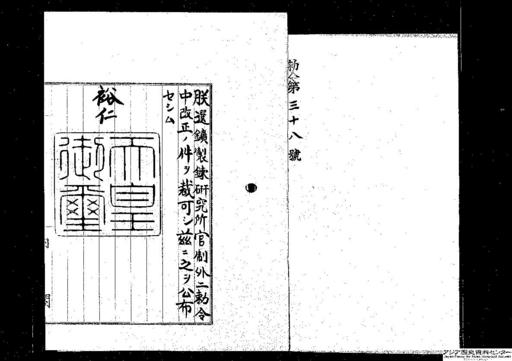 勅令第三十八號
朕選鑛製錬研究所官制外二勅令
中改正ノ件ヲ裁可シ茲ニ之ヲ公布
セシム
裕仁
天皇
御璽
アジア歴史資料センター